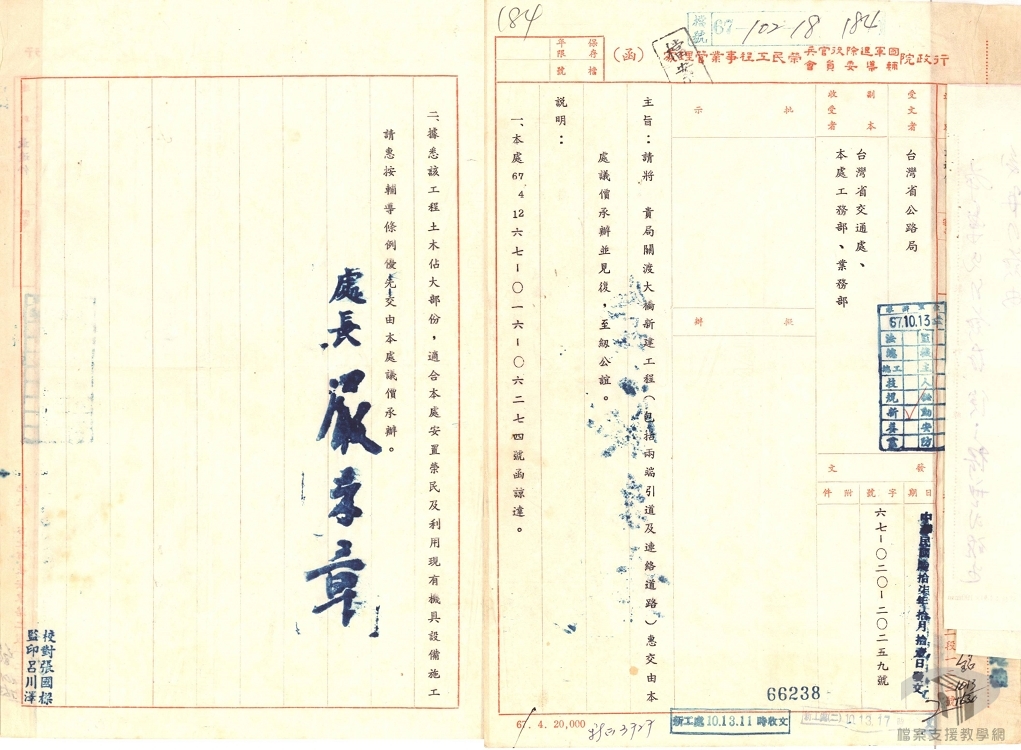 184
檔號 67-102-18 184
保存年限
檔號
行政院國軍退除役官兵輔導委員會榮民工程事業管理處（函）
受文者
台灣省公路局
副本收受者
台灣省交通處、
本處工務部、業務部
批示
擬辦
發文
日期
字號
附件
中華民國陸拾柒年拾月拾壹日發文
六七-〇二〇-二〇二五九號
67.10.13
主旨：請將　貴局關渡大橋新建工程（包括兩端引道及連絡道路）惠交由本
處議價承辦並見復，至紉公誼。
說明：
一、本處67 4 12六七-〇一六-〇六二七四號函諒達。
二、據悉該工程土木佔大部份，適合本處安置榮民及利用現有機具設備施工
請惠按輔導條例優先交由本處議價承辦。
處長 嚴孝章
校對張國樑
監印呂川澤
66238
67. 4. 20,000
新工處10.13.11時收文
10.13.17
檔案支援教學網